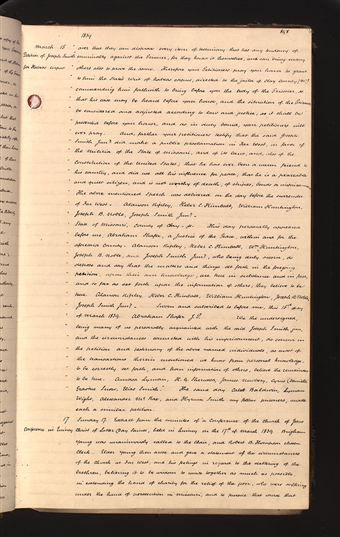 1839
March 15 over
Petition of Joseph Smith criminality against the Prisoner, for they know it themselves, and are trying every
for Habeas Corpus others also to prove the same. Therefore your Petitioners pray your honor to grant
to him the State Writ of habeas corpus, directed to the jailer of Clay County, Mo.
commanding him forthwith to bring before you the body of the Prisoner, so
that his case may be heard before your honor, and the situation of the Prisoner
be considered and adjusted according to law and justice, as it shall be
presented before your honor, and as in duty bound, your petitioners will
ever pray. And further your petitioners testify that the said Joseph
Smith Junr. did make a public proclamation in Far West, in favor of
the militia of the State of Missouri, and of its laws, and also of the
Constitution of the United States; that he has ever been a warm friend to
his country, and did use all his influence for peace; that he is a peaceable
and quiet citizen, and is not worthy of death, of stripes, bonds or imprisonment.
The above mentioned speech was delivered on the day before the surrender
of Far West. Alanson Ripley, Heber C. Kimball, William Huntington,
Joseph B. Noble, Joseph Smith Junr.
State of Missouri, County of Clay, ss. This day personally appeared
before me, Abraham Shafer, a Justice of the Peace within and for the
aforesaid County. Alanson Ripley, Heber C. Kimball, Wm. Huntington,
Joseph B. Noble, and Joseph Smith Junr., who being duly sworn, do
depose and say that the matters and things set forth in the foregoing
petition, upon their own knowledge, are true in substance and in fact,
and so far as set forth upon the information of others, they believe to be
true. Alanson Ripley, Heber C. Kimball, William Huntington, Joseph B. Noble,
Joseph Smith Junr. Sworn and subscribed to before me, this 15th day
of March 1839. Abraham Shafer J.P. We the undersigned,
being many of us personally acquainted with the said Joseph Smith Jun,
and the circumstances connected with his imprisonment, do concur in
the petition and testimony of the above named individuals, as most of
the transactions therein mentioned we know from personal knowledge,
to be correctly set forth, and from information of others, believe the remainder
to be true. Amasa Lyman, H. G. Sherwood, James Newberry, Cyrus Daniels,
Erastus Snow, Elias Smith. The same day Caleb Baldwin, Lyman
Wight, Alexander Mc Rae, and Hyrum Smith my fellow prisoners, made
each a similar petition.
17 Sunday 17. Extract from the minutes of a Conference of the Church of Jesus
Conference in Quincy Christ of Latter Day Saints, held in Quincy on the 17th of March 1839. Brigham
Young was unanimously called to the Chair, and Robert B. Thompson chosen
Clerk. Elder Young then arose and gave a statement of the circumstances
of the Church at Far West, and his feelings in regard to the scattering of the
brethren, believing it to be wisdom to unite together as much as possible
in extending the hand of charity for the relief of the poor, who were suffering
under the hand of persecution in Missouri, and to pursue that course that